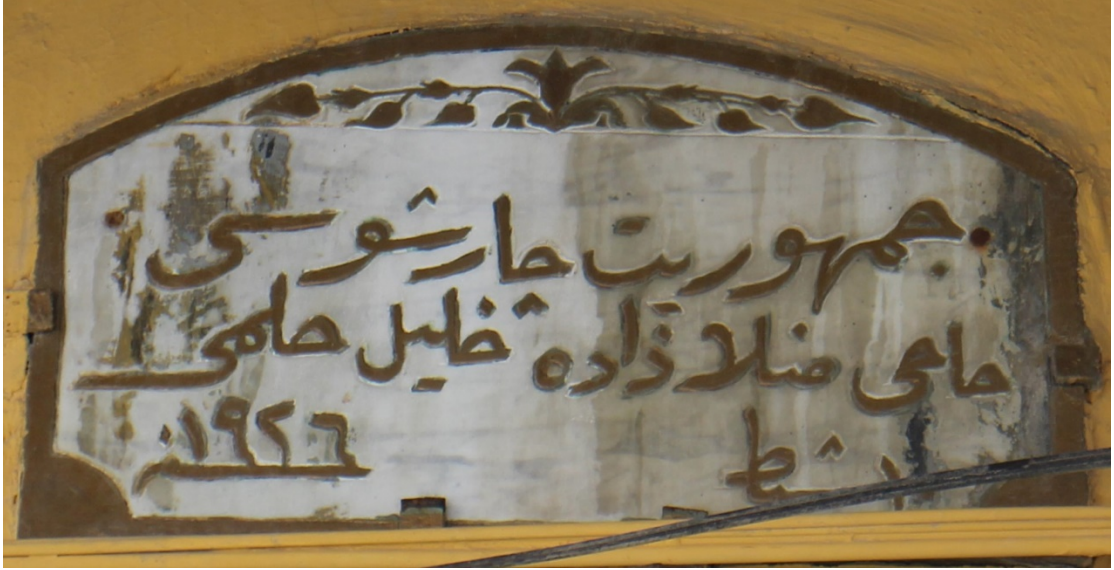 جمهوريت چارشوسى
حاجى منلا زاده خليل حلمى
١ شباط ١٩٢٦